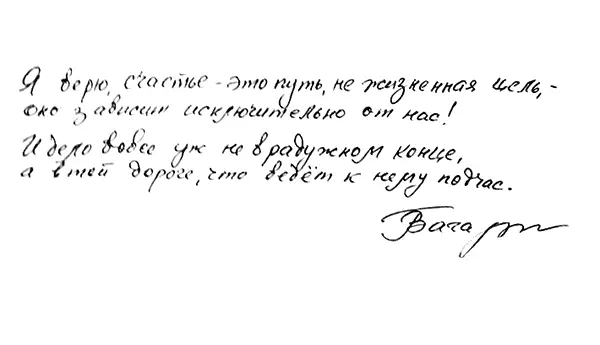 Я верю, счастье - это путь, не жизненная цель, -
оно зависит исключительно от нас!
И дело вовсе уж не в радужном конце,
а в той дороге, что ведёт к нему подчас.